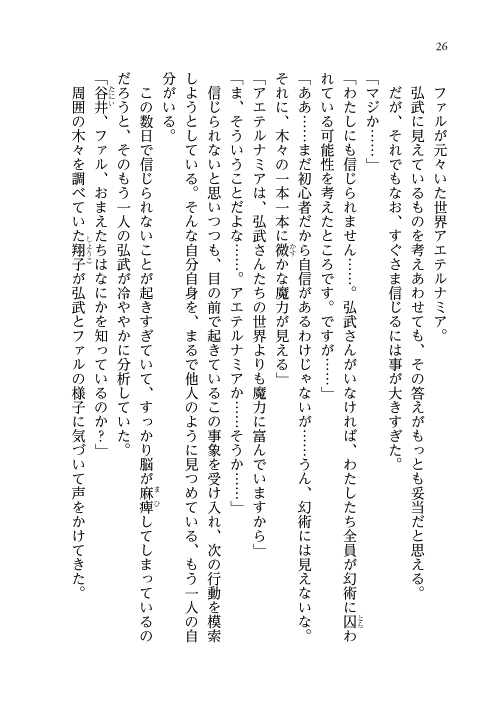 26
ファルが元々いた世界アエテルナミア。
弘武に見えているものを考えあわせても、その答えがもっとも妥当だと思える。
だが、それでもなお、すぐさま信じるには事が大きすぎた。
「マジか……」
「わたしにも信じられません……。弘武さんがいなければ、わたしたち全員が幻術に囚わ
れている可能性を考えたところです。ですが……」
「ああ……まだ初心者だから自信があるわけじゃないが……うん、幻術には見えないな。
それに、木々の一本一本に微かな魔力が見える」
「アエテルナミアは、弘武さんたちの世界よりも魔力に富んでいますから」
「ま、そういうことだよな……。アエテルナミアか……そうか……」
信じられないと思いつつも、目の前で起きているこの事象を受け入れ、次の行動を模索
しようとしている。そんな自分自身を、まるで他人のように見つめている、もう一人の自
分がいる。
この数日で信じられないことが起きすぎていて、すっかり脳が麻痺してしまっているの
だろうと、そのもう一人の弘武が冷ややかに分析していた。
「谷井、ファル、おまえたちはなにかを知っているのか？」
周囲の木々を調べていた翔子が弘武とファルの様子に気づいて声をかけてきた。